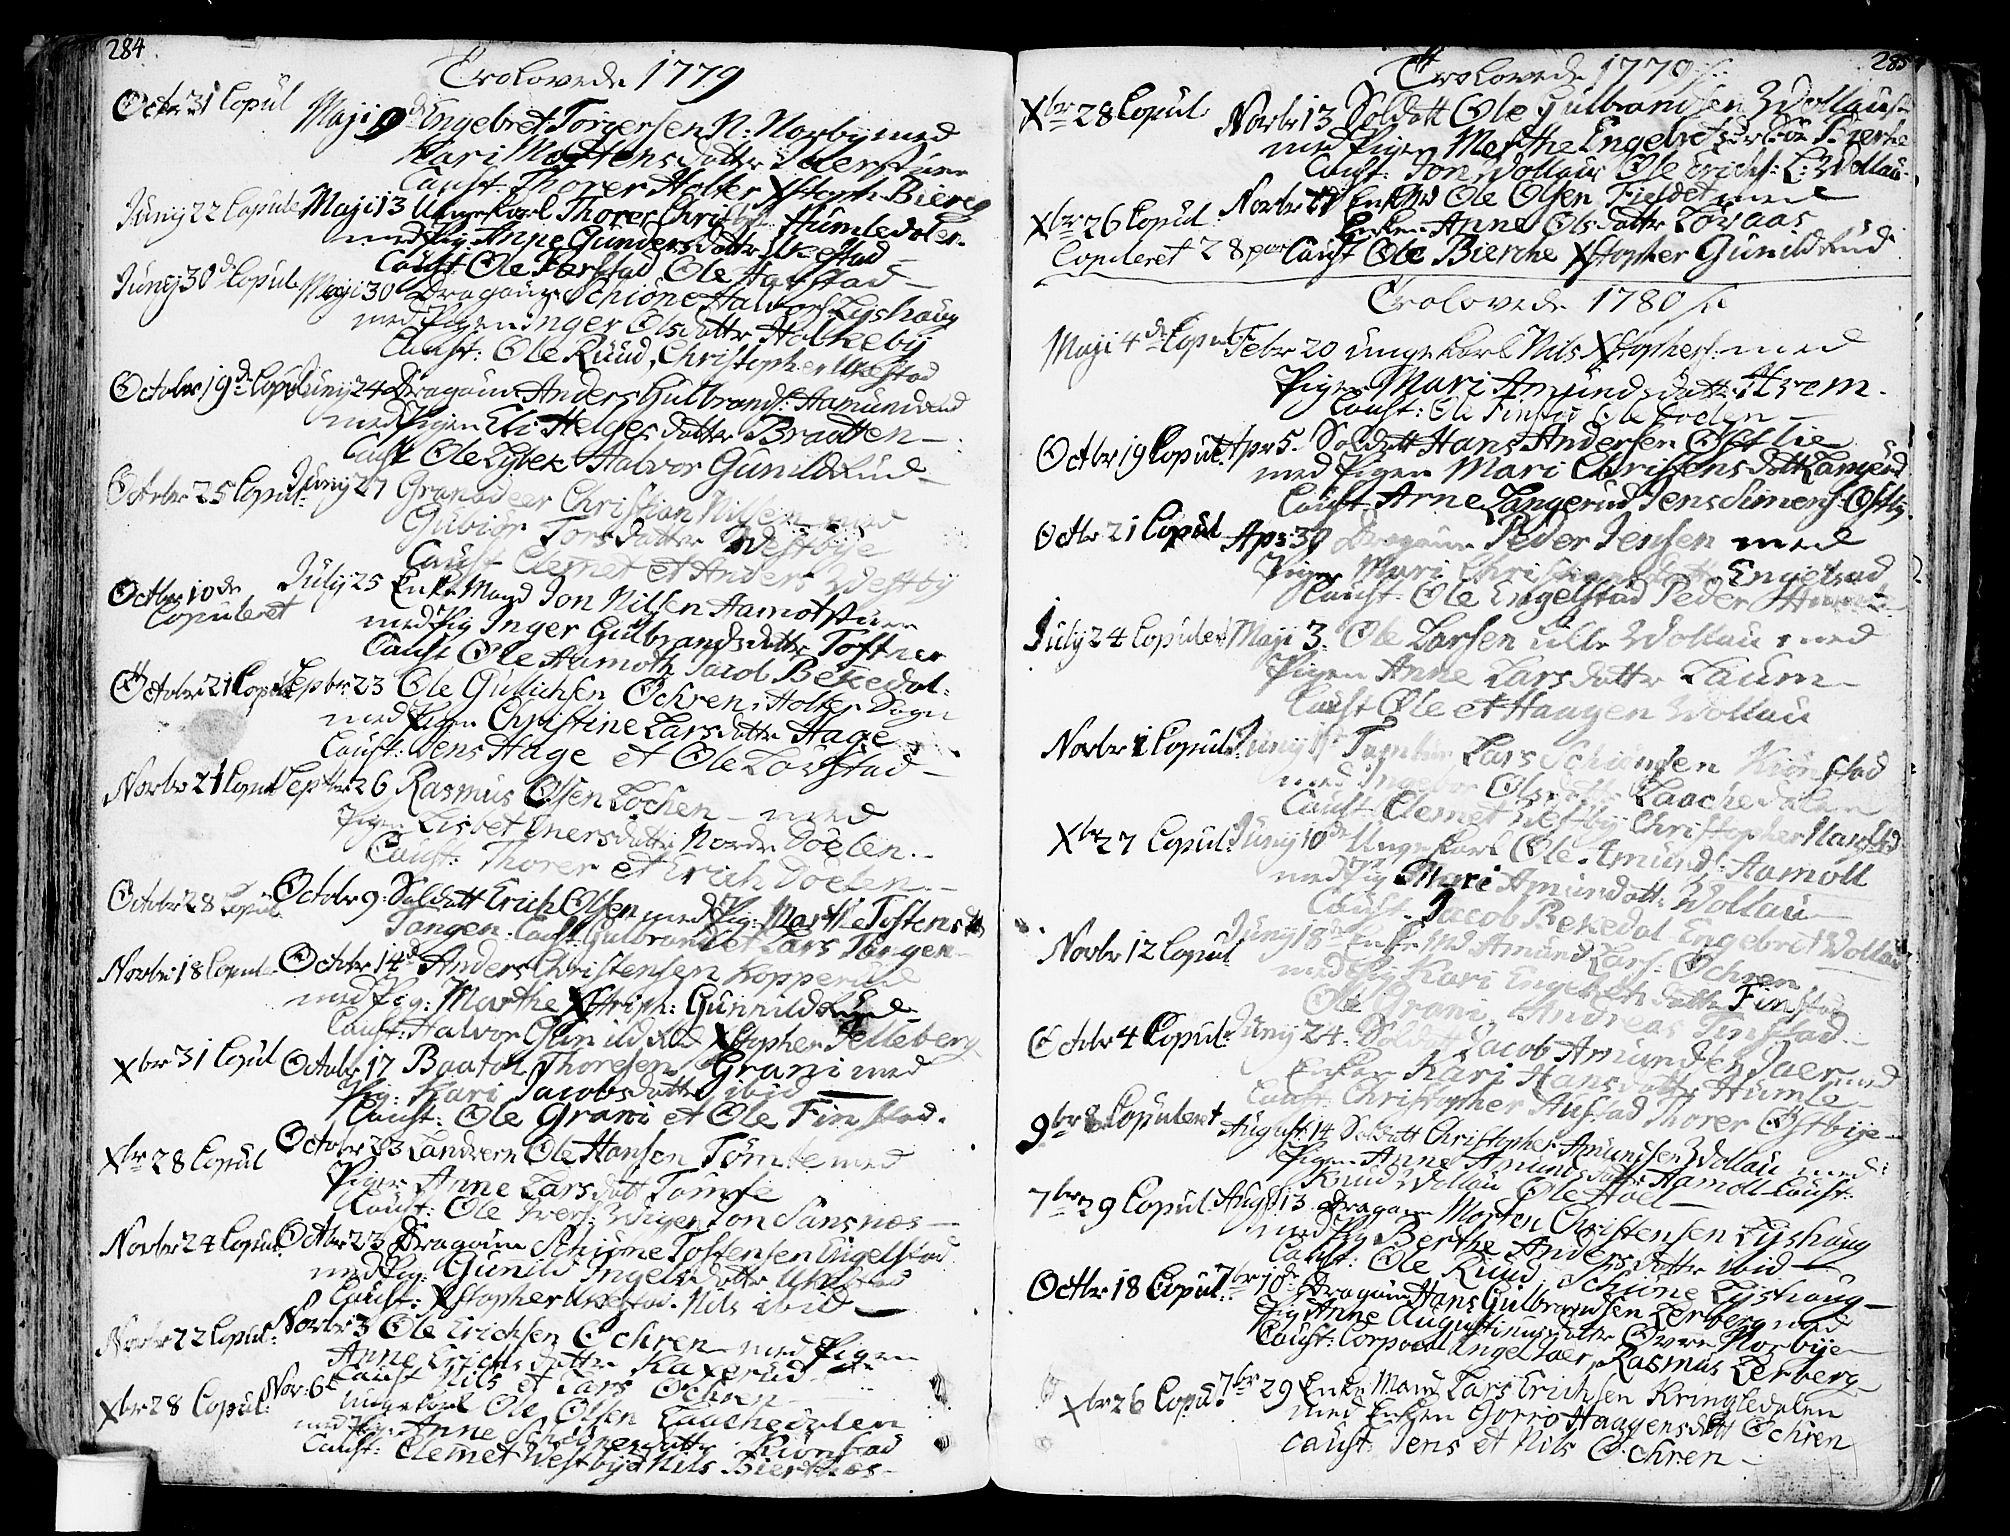 284
Trolovede 1779
Octbr 31 Copul
Maji 9de Engebret Torgersen N: Norby med
Kari Mortensdatter
Caust: Thorer Holter Xstoph Biereg
Junij 22 Copule Maji 13 Ungekarl Thorer Christ: Humledalen
med Pig Anne Gundersdatter Ukestad
Caust Ole Harstad Ole Harstad
Junij 30de Copule Maji 30 Dragoun Schiöne Halvors: Lijshaug
med Pigen Inger Olsdatter Holkebij
Caust: Ole Ruud, Christopher Ukestad
Octobr 19de Copul Junij 24 Dragoun Anders Gulbrands: Hamund
med Pigen Eli Helgesdatter Braatten
Caust Ole Lybek Halvor Gunildrud
Octobr 25 Copul Junij 27 Granadeer Christian Nilsen med
Gubiör Torsdatter Westbije
Caust Clemet et Anders Westbij
Octbr 10de
Copuleret
July 25 Enke Mand Jon Nilsen Aamotstuen
med Pig Inger Gulbrandsdatter Toftner
Caust Ole Aamoth Jacob Bekedal
Octobr 21 Copul Septbr 23 Ole Gulichsen Ochren, Holter Sogn
med Pigen Christine Larsdatter Hage
Caust: Jens Hage et Ole Lövstad
Novbr 21 Copul Septbr 26 Rasmus Olsen Lochen med
Pigen Lisbet Inersdatter Nordr Doelen
Caust: Thorer et Erich Doelen
Octobr 28 Copul Octobr 9 Soldatt Erich Olsen med Pig: Marthe Tostensd
Tangen. Caust: Gulbrand et Lars Tangen
Novbr 18 Copul Octobr 14de Anders Christensen Kopperud
med Pig: Marthe Xstoph: Gunnildrud
Caust: Halvor Gunildrud Xstopher Telleberg
Xbr 31 Copul Octobr 17 Baatol Thoresen Grani med
Pig: Kari Jacobsdatter ibid
Caust: Ole Grani et Ole Finstad.
Xbr 28 Copul Octobr 23 Landvern Ole Hansen Tömte med
Pigen Anne Larsdatt Tomte
Caust: Ole Ivers: Wigen Jon Sansnes
Novbr 24 Copul Octbr 23 Dragoun Schiöne Tostensen Engelstad
med Pig: Gunild Ingelsdatter Ukestad
Caust: Xstopher Ukestad. Nils ibid
Novbr 22 Copul: Novbr 3 Ole Erichsen Ochren med Pigen
Anne Erichsdatter Kaxerud
Caust Nils et Lars Ochren
Xbr 28 Copul: Nov: 6te Ungekarl Ole Olsen Laachedalen
med Pig: Anne Schiönesdatter Kiönstad
Caust: Clemet Westbije Nils Bierkenes
285
Trolovede 1779
Xbr 28 Copul Novbr 13 Soldatt Ole Gulbrandsen Wollaug
med Pigen Merthe Engebretsd: Bierke
Caust: Jon Wollaug Ole Erichs: L: Wollau
Xbr 26 Copul Novbr 27 Enkemd Ole Olsen Fieldet med
Enken Anne Olsdatter Lövaas
Copuleret 28 par Caust Ole Bierche Xstopher Gunildrud
Trolovede 1780
Maji 4de Copul Febr 20 unge karl Nils Xstophers: med
Pigen Mari Amundsdatt: Asrem
Caust: Ole Finstad Ole Doelen
Octbr 19 Copul Apr 5. Soldatt Hans Andersen Ostlie
med Pigen Mari Christensdatt Langerud
Caust Arne Langerud Jens Simens: Ostlij
Octbr 21 Copul Apr: 30 Dragoun Peder Jensen med
Pigen Mari Christiansdatt Engelstad
Caust: Ole Engelstad Peder
July 24 Copuleret Maji 3. Ole Larsen Lille Wollau med
Pigen Anne Larsdatter Laum
Caust Ole et Haagen Wollau
Novbr 1 Copul Junij Tambur Lars Schiönsen Kiönstad
med Ingebor Olsdatter Laachedalen
Caust: Clemet Westbij Christopher Harstad
Xbr 27 Copul: Junij 10de Ungekarl Ole Amunds: Aamott
med Pig Mari Amundsdatt: Wollau
Caust: Jacob Bekedal Engebret Wollau
Novbr 12 Copul Junij 18de Enke Md Amund Lars: Ochren
med Pig Kari Engebretsdatter Finstad
Ole Grani Andreas Finstad
Octbr 4 Copul: Juny 24. Soldatt Jacob Amundsen Jaer med
Enken Kari Hansdatter Humle
Caust Christopher Austad Thorer Östbije
9br 8 Copuleret August 14 Soldatt Christopher Amundsen Wollau med
Pigen Anne Amundsdatt: Aamott Caust:
Knud Wollau Ole Hoel
7br 29 Copul. Aug: 13. Dragoun Morten Christensen Lijshaug
med Pig Berthe Andersdatter ibid
Caust: Ole Ruud, Schiöne Lijshaug
Octbr 18 Copul 7br 10de Dragoun Hans Gulbrandsen Lerberg med
Pig Anne Augustinusdatter Övre Norbije
Caust: Corporal Engel Jaer, Rasmus Lerberg
Xbr 26 Copul 7br 29 Enke Mand Lars Erichsen Kringledalen
med Enken Gorro Haagensdatt Ochren
Caust Jens et Nils Ochren